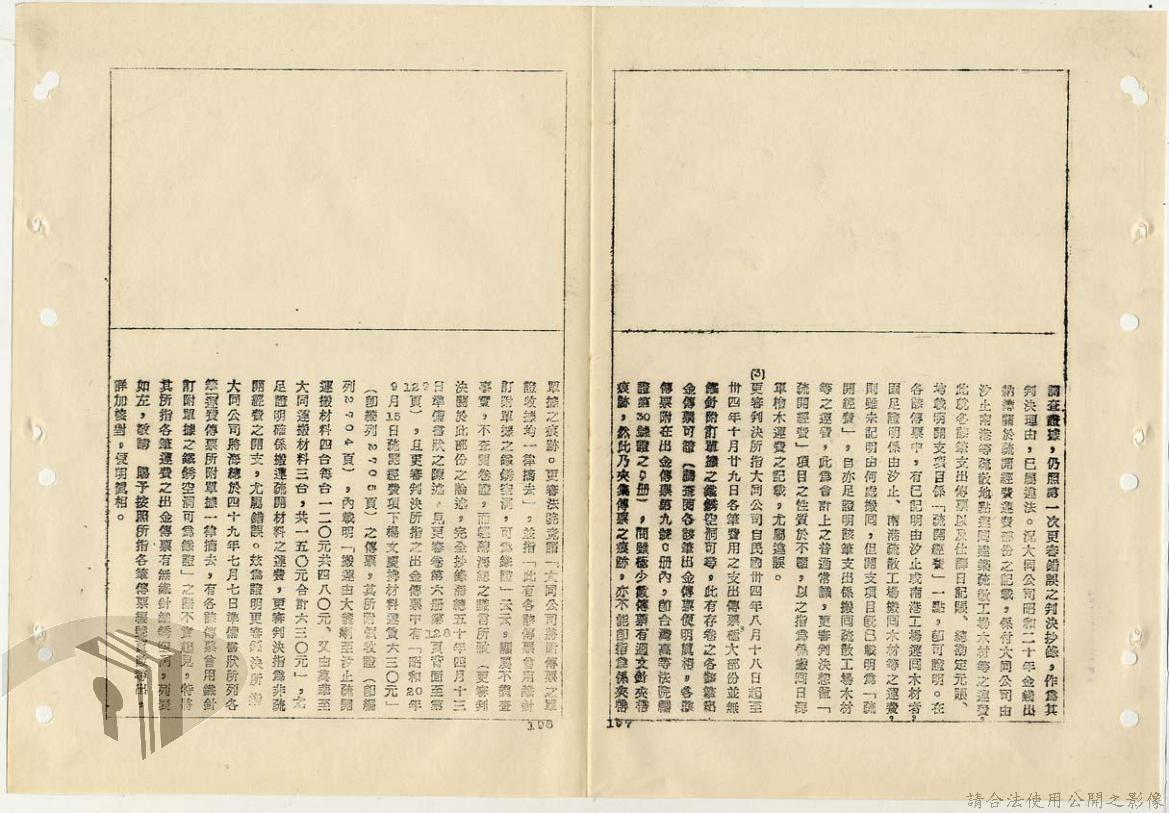 調查證據，仍照第一次更審錯誤之判決抄錄，作爲其
判決理由，已屬違法。況大同公司昭和二十年金錢出
納簿關於疏開經費運費部份之記載，係付大同公司由
汐止南港等疏散地點運回建築疏散工場木材等之運費，
此就各該筆支出傳票以及仕譯日記賬、總勘定元賬、
均載明開支項目係「疏開經費」一點，卽可證明。在
各該傳票中，有已記明由汐止或南港工場運回木材者，
固足證明係由汐止、南港疏散工場搬回木材等之運費，
則雖未記明由何處搬回，但開支項目旣已載明爲「疏
開經費」，自亦足證明該筆支出係搬回疏散工場木材
等之運費，此爲會計上之普通常識，更審判決想置「
疏開經費」項目之性質於不顧，以之指爲係搬回日海
軍檜木運費之記載，尤屬違誤。
(3)更審判決所指大同公司自民國卅四年八月十八日起至
卅四年十月廿九日各筆費用之支出傳票極大部份並無
鐵針附訂單據之鐵銹空洞可尋，此有存卷之各該筆出
金傳票可證（請查閱各該筆出金傳票便明眞相，各該
傳票附在出金傳票第九號C册內，卽台灣高等法院編
證第30號證之C册），間雖極少數傳票有迴文針夾着
痕跡，然此乃夾集傳票之痕跡，亦不能卽指爲係夾着
197
單據之痕跡。更審法院竟謂「大同公司將附傳票之單
證收據均一律摘去」，並指「此有各該傳票曾用鐵針
訂附單據之鐵銹空洞，可爲鐵證」云云，顯屬不調查
事實，不查閱卷證，而輕聽海總之議書所致（更審判
決關於此部份之論述，完全抄錄海總五十年四月十三
日準備書狀之陳述，見更審卷第六册第128頁背面至第
129頁），且更審判決所指之出金傳票中有「昭和20年
9月15日疏開經費項下楊文慶搬材料運費六三〇元」
（卽編列2705頁）之傳票，其所附領收證（卽編
列2704頁），內載明「搬運由大龍峒至汐止疏開
運搬材料四台每台一二〇元共四八〇元、又由萬華至
大同運搬材料三台，共一五〇元合計六三〇元」，尤
足證明確係搬運疏開材料之運費，更審判決指爲非疏
開經費之開支，尤屬錯誤。茲爲證明更審判決所指
大同公司將海總於四十九年七月七日準備書狀所列各
筆運費傳票所附單據一律摘去，有各該傳票曾用鐵針
訂附單據之鐵銹空洞可爲鐵證」之語不實起見，特將
其所指各筆運費之出金傳票有無鐵針鐵銹空洞，列表
如左，敬請　賜予按照所指各筆傳票
詳加核對，便明眞相。
198
請合法使用公開之影像